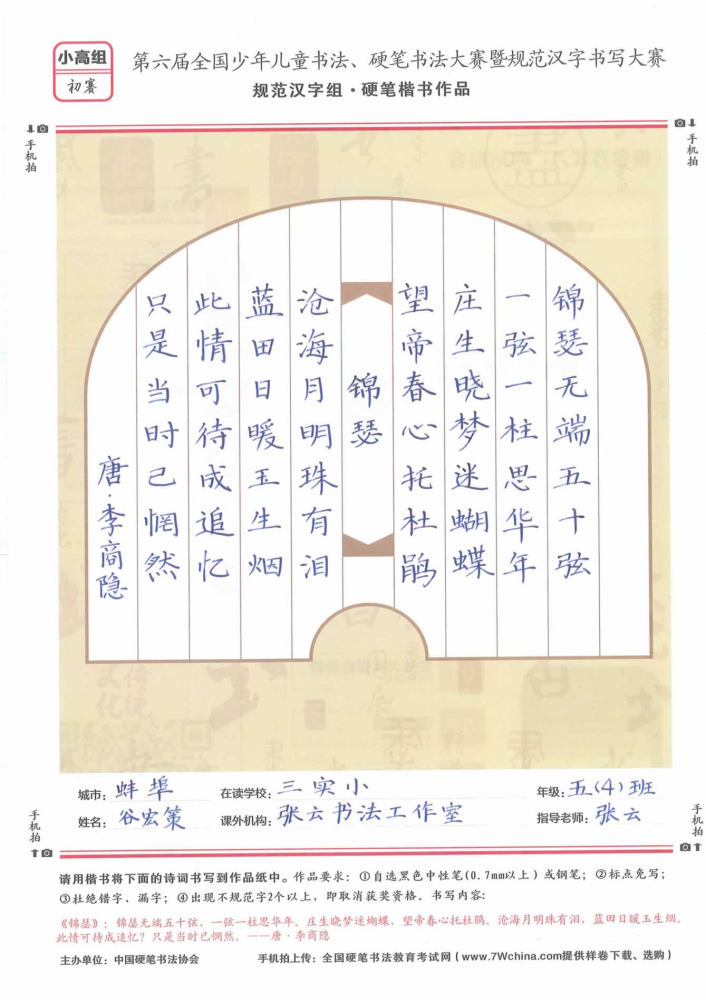 小高组
初赛
第六届全国少年儿童书法、硬笔书法大赛暨规范汉字书写大赛
规范汉字组·硬笔楷书作品
手机拍
手机拍
锦瑟无端五十弦
一弦一柱思华年
庄生晓梦迷蝴蝶
望帝春心托杜鹃
锦瑟
沧海月明珠有泪
蓝田日暖玉生烟
此情可待成追忆
只是当时已惘然
唐·李商隐
城市：蚌埠 在读学校：三实小 年级：五(4)班
姓名：谷宏策 课外机构：张云书法工作室 指导老师：张云
手机拍
手机拍
请用楷书将下面的诗词书写到作品纸中。作品要求：①自选黑色中性笔(0.7mm以上)或钢笔；②标点免写；
③杜绝错字、漏字；④出现不规范字2个以上，即取消获奖资格。书写内容：
《锦瑟》：锦瑟无端五十弦，一弦一柱思华年。庄生晓梦迷蝴蝶，望帝春心托杜鹃。沧海月明珠有泪，蓝田日暖玉生烟。
此情可待成追忆？只是当时已惘然。——唐·李商隐
主办单位：中国硬笔书法协会 手机拍上传：全国硬笔书法教育考试网（www.7Wchina.com提供样卷下载、选购）